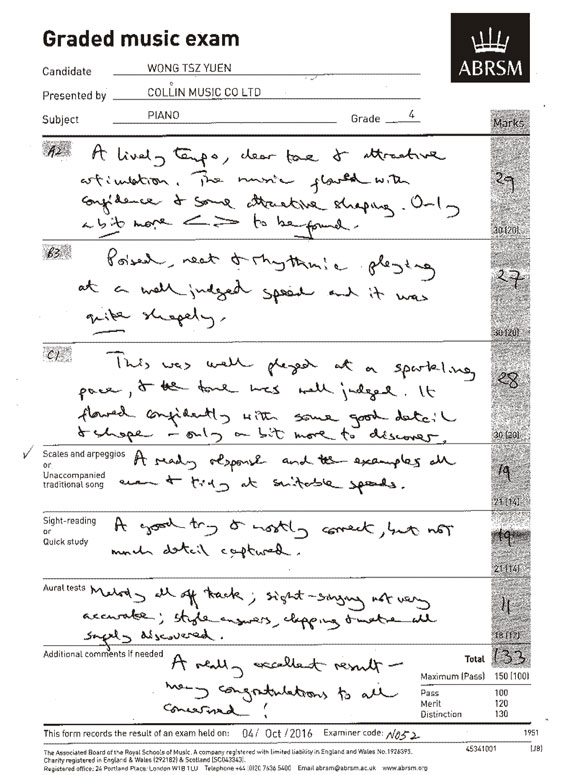 Graded music exam
ABRSM
Candidate WONG TSZ YUEN
Presented by COLLIN MUSIC CO LTD
Subject PIANO Grade 4
Marks
A2 A lively tempo, clear tone & attractive
articulation. The music flowed with
confidence & some attractive shaping. Only
a bit more < > to be found.
29
30 (20)
B3 Poised, neat & rhythmic playing
at a well judged speed and it was
quite shapely.
27
30 (20)
C1 This was well played at a sparkling
pace, & the tone was well judged. It
flowed confidently with some good detail
& shape – only a bit more to discover.
28
30 (20)
✓ Scales and arpeggios
or
Unaccompanied
traditional song
A ready response and examples all
even & tidy at suitable speeds.
19
21 (14)
Sight-reading
or
Quick study
A good try & mostly correct, but not
much detail captured.
19
21 (14)
Aural tests Melody all off track; sight-singing not very
accurate; style answers, clapping & metre all
safely discovered.
11
18 (12)
Additional comments if needed
A really excellent result –
many congratulations to all
concerned!
Total 133
Maximum (Pass) 150 (100)
Pass 100
Merit 120
Distinction 130
This form records the result of an exam held on: 04/ Oct / 2016 Examiner code: N052
1951
The Associated Board of the Royal Schools of Music. A company registered with limited liability in England and Wales No.1926393.
Charity registered in England & Wales (292182) & Scotland (SC043343).
Registered office: 24 Portland Place London W1B 1LU Telephone +44 (0)20 7636 5400 Email abrsm@abrsm.ac.uk www.abrsm.org
45341001 (JB)